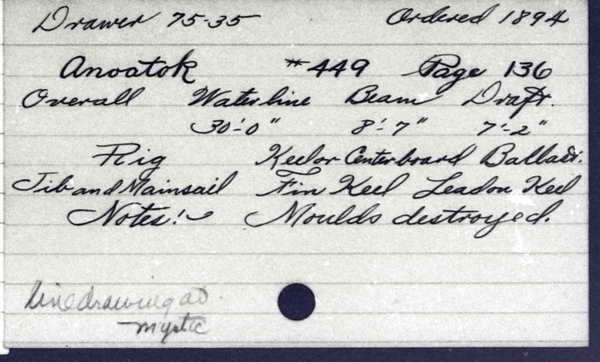 Drawer 75-35 Ordered 1894
Anoatok #449 Page 136
Overall Waterline Beam Draft.
30'-0" 8'-7" 7'-2"
Rig Keel or Centerboard Ballast.
Jib and Mainsail Fin Keel Lead on Keel
Notes:- Moulds destroyed.
line drawing at
mystic